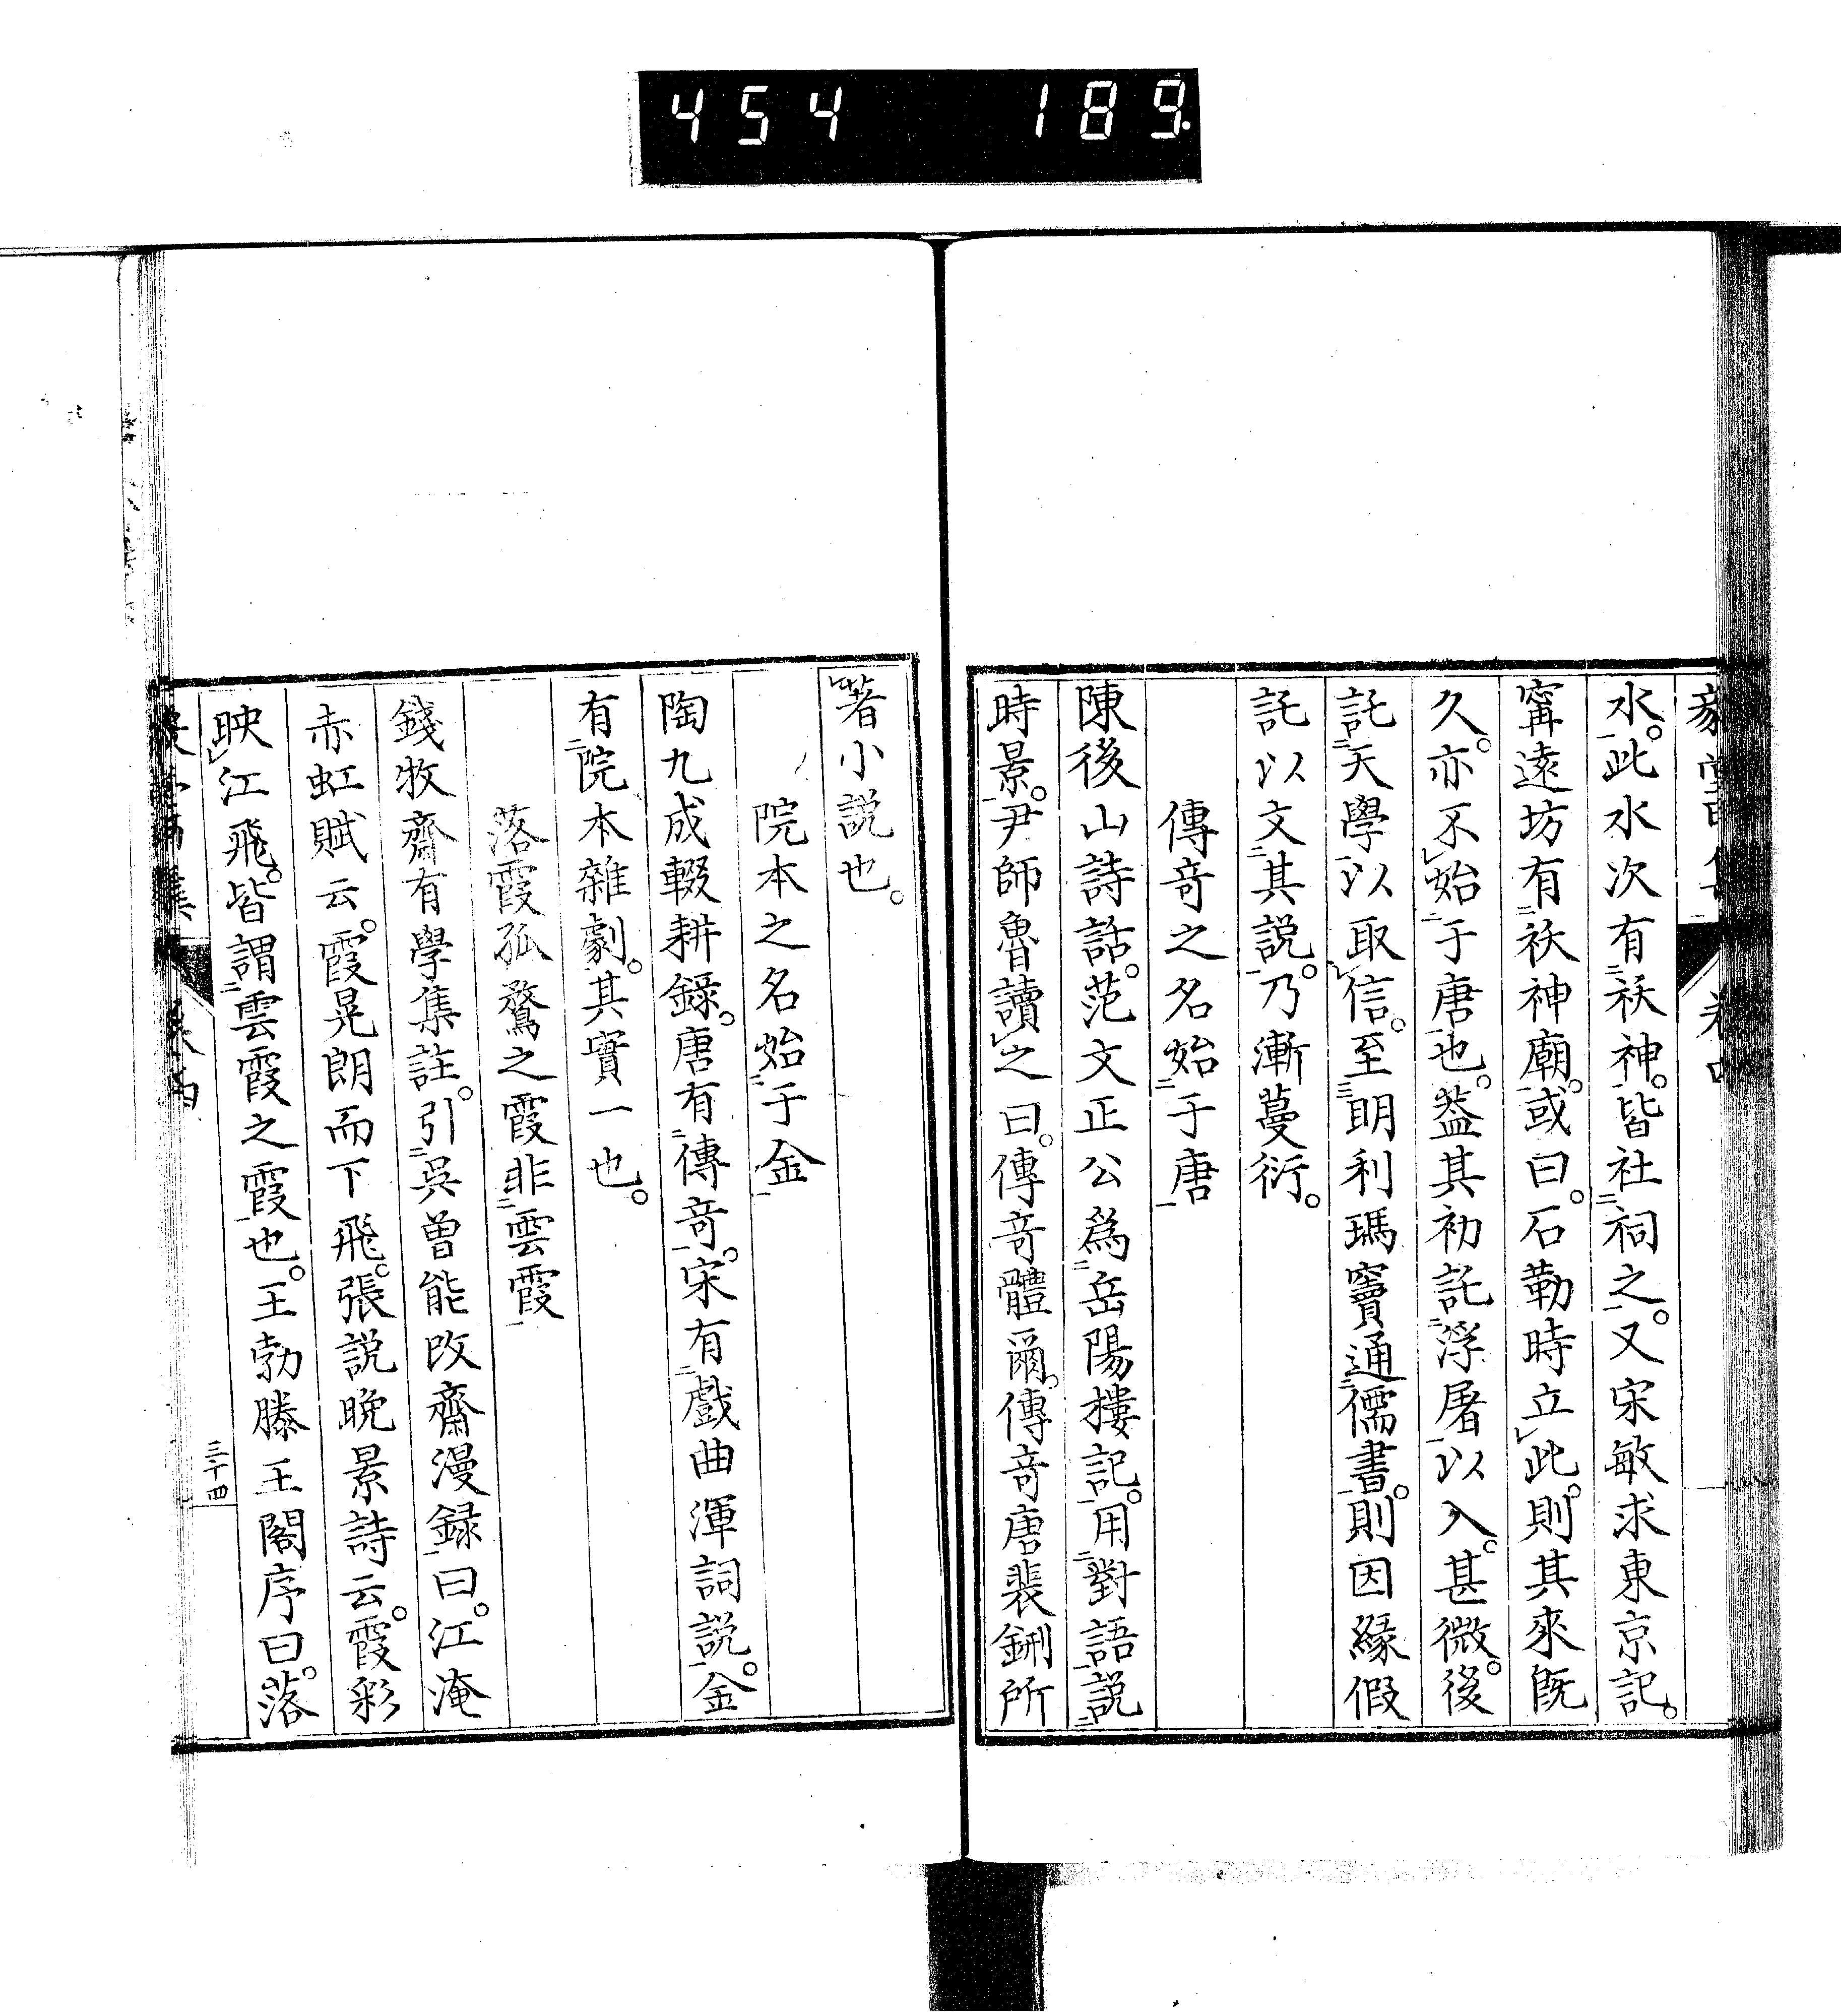 454 189.
水。此水次有祆神。皆社祠之。又宋敏求東京記。
甯遠坊有祆神廟。或曰。石勒時立此。則其來既
久。亦不始于唐也。葢其初託浮屠以入。甚微。後
託天學以取信。至明利瑪竇通儒書。則因緣假
託以文其説。乃漸蔓衍。
傳竒之名始于唐
陳後山詩話。范文正公爲岳陽樓記。用對語説
時景。尹師魯讀之曰。傳竒體爾。傳竒唐裴鉶所
著小説也。
院本之名始于金
陶九成輟耕錄。唐有傳竒。宋有戲曲渾詞説。金
有院本雜劇。其實一也。
落霞孤鶩之霞非雲霞
錢牧齋有學集註。引吳曾能改齋漫録曰。江淹
赤虹賦云。霞晃朗而下飛。張説晩景詩云。霞彩
映江飛。皆謂雲霞之霞也。王勃滕王閣序曰。落
三十四